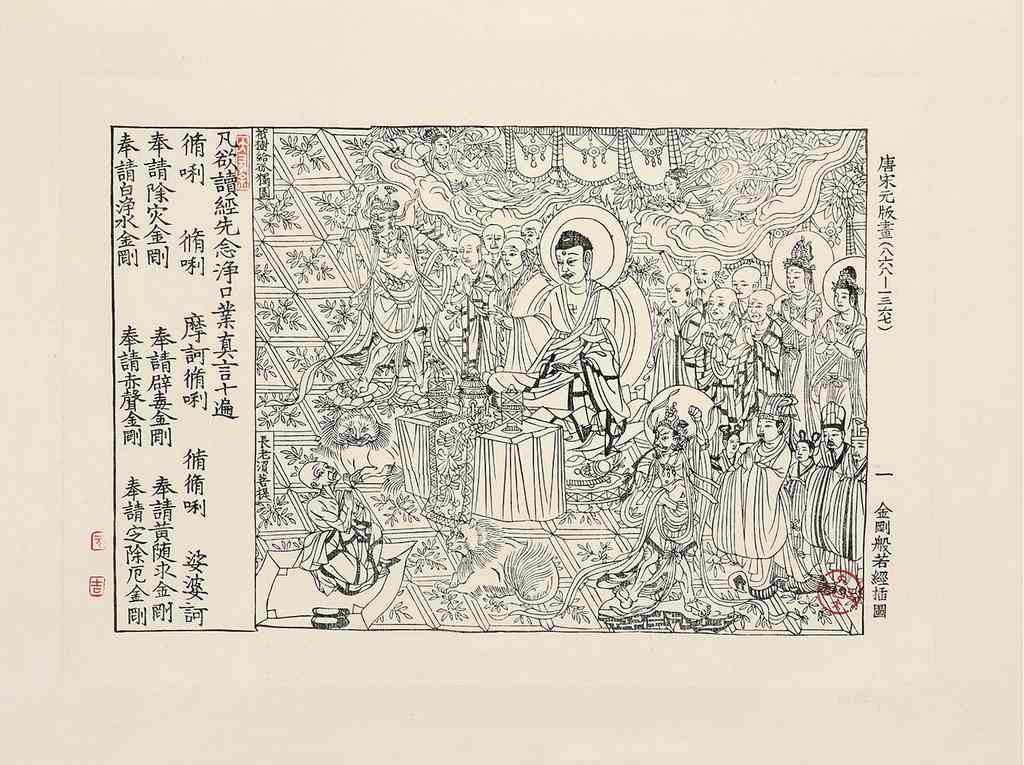 唐宋元版畫(八六八—一三六七)
一 金剛般若經插圖
祇樹給孤獨園
長老須菩提
凡欲讀經先念淨口業真言十遍
脩唎 脩唎 摩訶脩唎 脩脩唎 娑婆訶
奉請除灾金剛 奉請辟毒金剛 奉請黃随求金剛
奉請白淨水金剛 奉請赤聲金剛 奉請定除厄金剛
吉